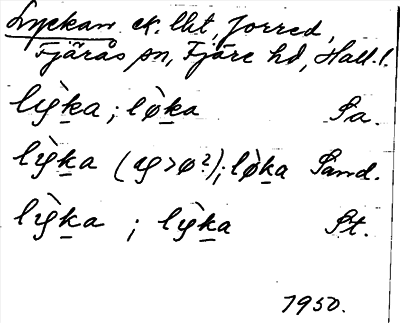 Lyckan ek. lht, Torred,
Fjärås sn, Fjäre hd, Hall. l.
lỳka ; lø̀ka Sa.
lỳka (y > ø?); lø̀ka Sand.
lỳka ; lỳka St.
1950.